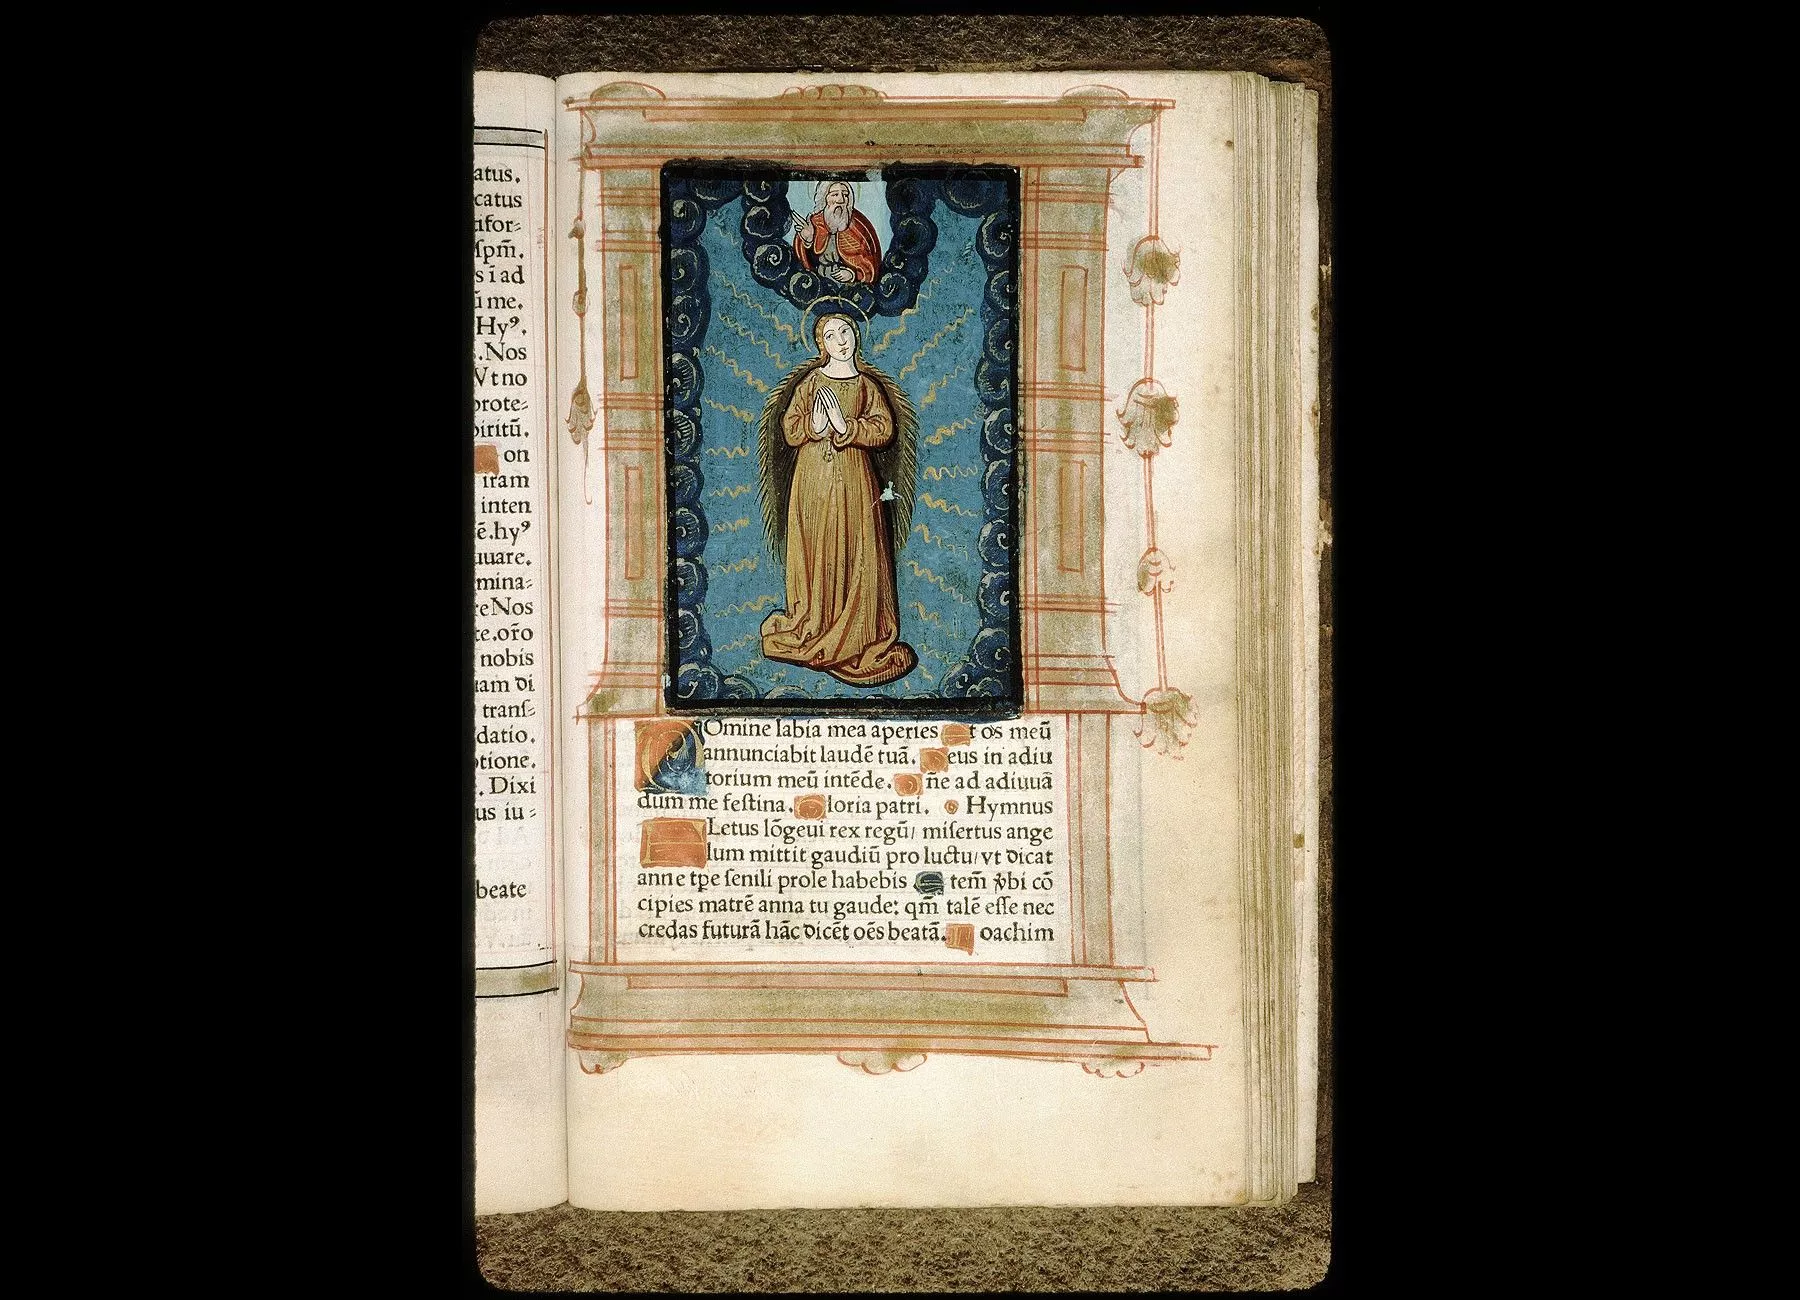 atus.
catus
ifor-
spm̄.
s ī ad
ū me.
Hyꝰ.
.Nos
Vt no
prote-
piritū.
on
iram
inten
ē.hyꝰ
uuare.
mina-
reNos
te.or̄o
nobis
iam di
transf-
datio.
ptione.
. Dixi
us iu-
beate
DOmine labia mea aperies Et os meū
annunciabit laudē tuā. Deus in adiu
torium meū intēde. Dñe ad adiuuā
dum me festina. Gloria patri. Hymnus
FLetus lōgeui rex regū/ misertus ange
lum mittit gaudiū pro luctu/ vt dicat
anne tpe senili prole habebis Et tem̄ v̄bi cō
cipies matrē anna tu gaude: qm̄ talē esse nec
credas futurā hāc dicēt oēs beatā. Ioachim